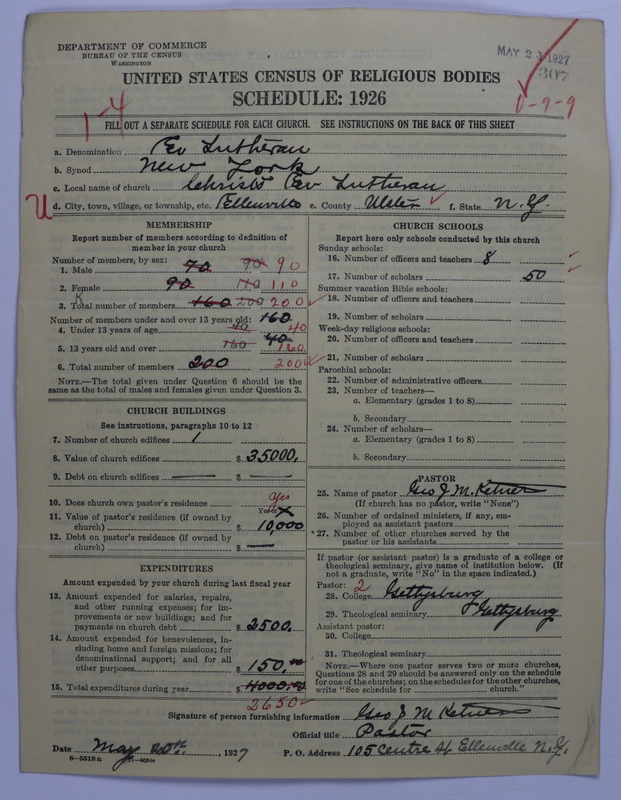 DEPARTMENT OF COMMERCE
BUREAU OF THE CENSUS
WASHINGTON
MAY 2 1927
307
UNITED STATES CENSUS OF RELIGIOUS BODIES
SCHEDULE: 1926
1-4
0-9-9
FILL OUT A SEPARATE SCHEDULE FOR EACH CHURCH. SEE INSTRUCTIONS ON THE BACK OF THIS SHEET
a. Denomination Ev Lutheran
b. Synod New York
c. Local name of church Christs Ev Lutheran
U d. City, town, village, or township, etc. Ellenville e. County Ulster f. State N.Y.
MEMBERSHIP
Report number of members according to definition of member in your church
Number of members, by sex:
1. Male 70 90 90
2. Female 90 110 110
3. Total number of members 160 200 200
Number of members under and over 13 years old: 160
4. Under 13 years of age 40 40
5. 13 years old and over 160 40 160
6. Total number of members 200 200
NOTE.—The total given under Question 6 should be the
same as the total of males and females given under Question 3.
CHURCH BUILDINGS
See instructions, paragraphs 10 to 12
7. Number of church edifices 1
8. Value of church edifices $ 35000.
9. Debt on church edifices — $ —
10. Does church own pastor's residence yes
Yes or
11. Value of pastor's residence (if owned by
church) $ 10,000
12. Debt on pastor's residence (if owned by
church) $ —
EXPENDITURES
Amount expended by your church during last fiscal year
13. Amount expended for salaries, repairs,
and other running expenses; for im-
provements or new buildings; and for
payments on church debt $ 2500.
14. Amount expended for benevolences, in-
cluding home and foreign missions; for
denominational support; and for all
other purposes $ 150.00
15. Total expenditures during year $ 4000.00
2650
CHURCH SCHOOLS
Report here only schools conducted by this church
Sunday schools:
16. Number of officers and teachers 8
17. Number of scholars 50
Summer vacation Bible schools:
18. Number of officers and teachers
19. Number of scholars
Week-day religious schools:
20. Number of officers and teachers
21. Number of scholars
Parochial schools:
22. Number of administrative officers
23. Number of teachers—
a. Elementary (grades 1 to 8)
b. Secondary
24. Number of scholars—
a. Elementary (grades 1 to 8)
b. Secondary
PASTOR
25. Name of pastor Geo J. M. Ketner
(If church has no pastor, write "None")
26. Number of ordained ministers, if any, em-
ployed as assistant pastors
*27. Number of other churches served by the
pastor or his assistants
If pastor (or assistant pastor) is a graduate of a college or
theological seminary, give name of institution below. (If
not a graduate, write "No" in the space indicated.)
Pastor: 2
28. College Gettysburg
29. Theological seminary Gettysburg
Assistant pastor:
30. College
31. Theological seminary
NOTE.—Where one pastor serves two or more churches,
Questions 28 and 29 should be answered only on the schedule
for one of the churches; on the schedules for the other churches,
write "See schedule for church."
Signature of person furnishing information Geo J M Ketner
Official title Pastor
Date May 20th, 1927 P. O. Address 105 Centre St Ellenville N.Y.
8—5518 a 11—9054a